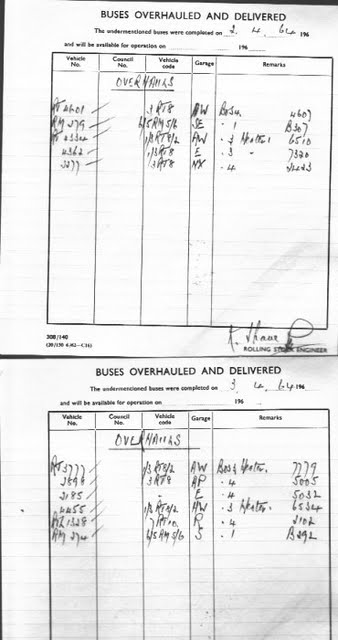 BUSES OVERHAULED AND DELIVERED
The undermentioned buses were completed on 2. 4. 64 196
and will be available for operation on 196
Vehicle No. Council No. Vehicle code Garage Remarks
OVERHAULS
RT 4601 3RT8 AW 4607
RM 279 2/5RM5/6 SE . 1 B307
1/3RT8/2 AW . 3 Heater 6510
4362 1/3RT8 E . 3 " 7320
3277 3RT8 NX . 4
308/140
ROLLING STOCK ENGINEER
BUSES OVERHAULED AND DELIVERED
The undermentioned buses were completed on 3. 4. 64 196
and will be available for operation on 196
Vehicle No. Council No. Vehicle code Garage Remarks
OVERHAULS
RT 3777 1/3 RT8/2 AW Heater. 7779
2898 3RT8 AP . 4 5005
2185 E . 4 5032
4455 1/3 RT8/2 AW . 3 Heater. 6534
1328 7RT10 R . 4 2102
RM 274 2/5RM5/6 S . 1 B292